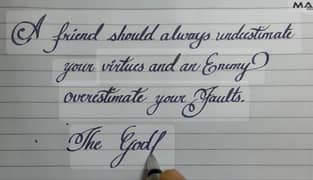 MA
A friend should always underestimate
your virtues and an Enemy
overestimate your Faults.
The God